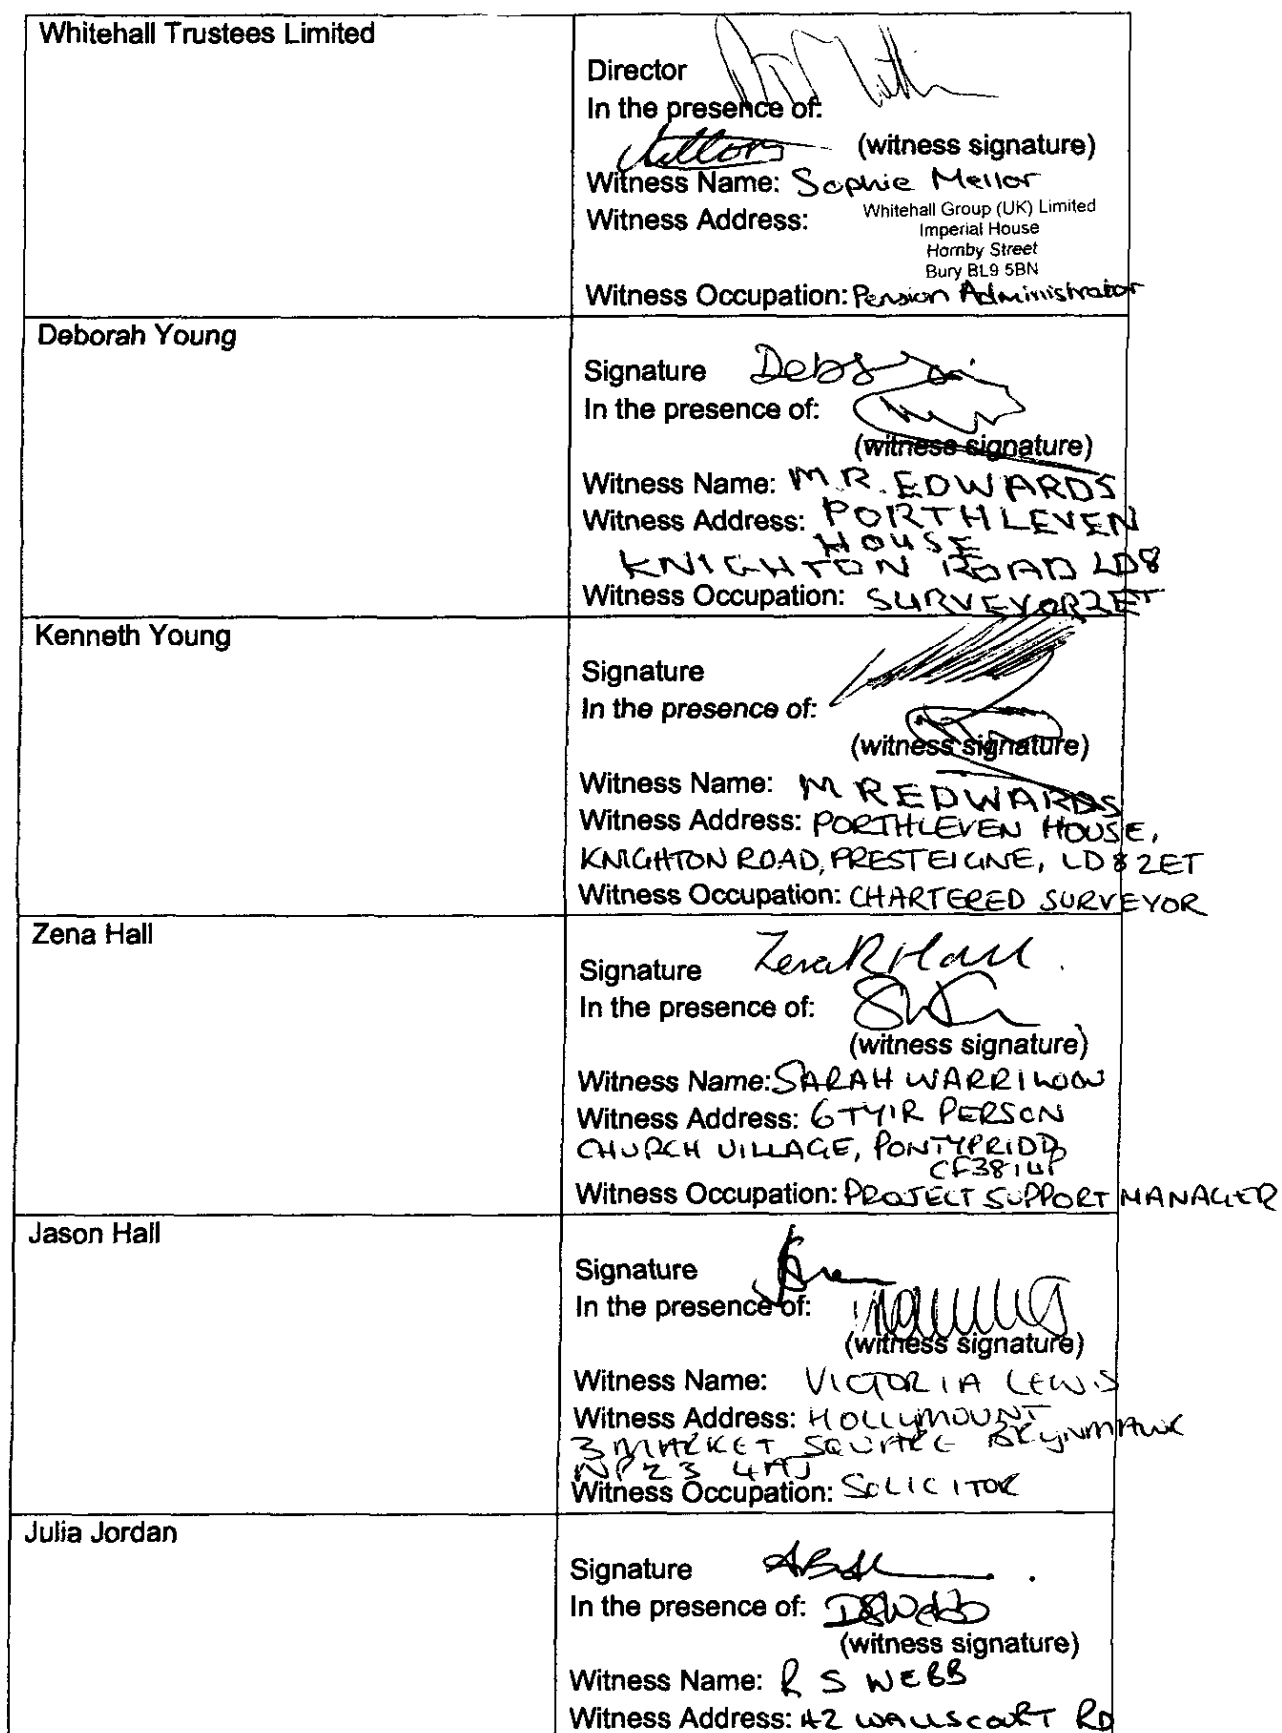 Whitehall Trustees Limited
Director
In the presence of:
(witness signature)
Witness Name: Sophie Mellor
Witness Address: Whitehall Group (UK) Limited
Imperial House
Hornby Street
Bury BL9 5BN
Witness Occupation: Pension Administrator
Deborah Young
Signature Debs
In the presence of:
(witness signature)
Witness Name: M.R. EDWARDS
Witness Address: PORTHLEVEN
HOUSE
KNIGHTON ROAD LD8
Witness Occupation: SURVEYOR 2ET
Kenneth Young
Signature
In the presence of:
(witness signature)
Witness Name: M R EDWARDS
Witness Address: PORTHLEVEN HOUSE,
KNIGHTON ROAD, PRESTEIGNE, LD8 2ET
Witness Occupation: CHARTERED SURVEYOR
Zena Hall
Signature Zena R Hall.
In the presence of:
(witness signature)
Witness Name: SARAH WARRILOW
Witness Address: 6 TYIR PERSON
CHURCH VILLAGE, PONTYPRIDD
Witness Occupation: PROJECT SUPPORT MANAGER
Jason Hall
Signature
In the presence of:
(witness signature)
Witness Name: VICTORIA LEWIS
Witness Address: HOLLYMOUNT
3 MARKET SQUARE BRYNMAWR
NP23 4AJ
Witness Occupation: SOLICITOR
Julia Jordan
Signature
In the presence of:
(witness signature)
Witness Name: R S WEBB
Witness Address: 42 WALLSCOURT RD